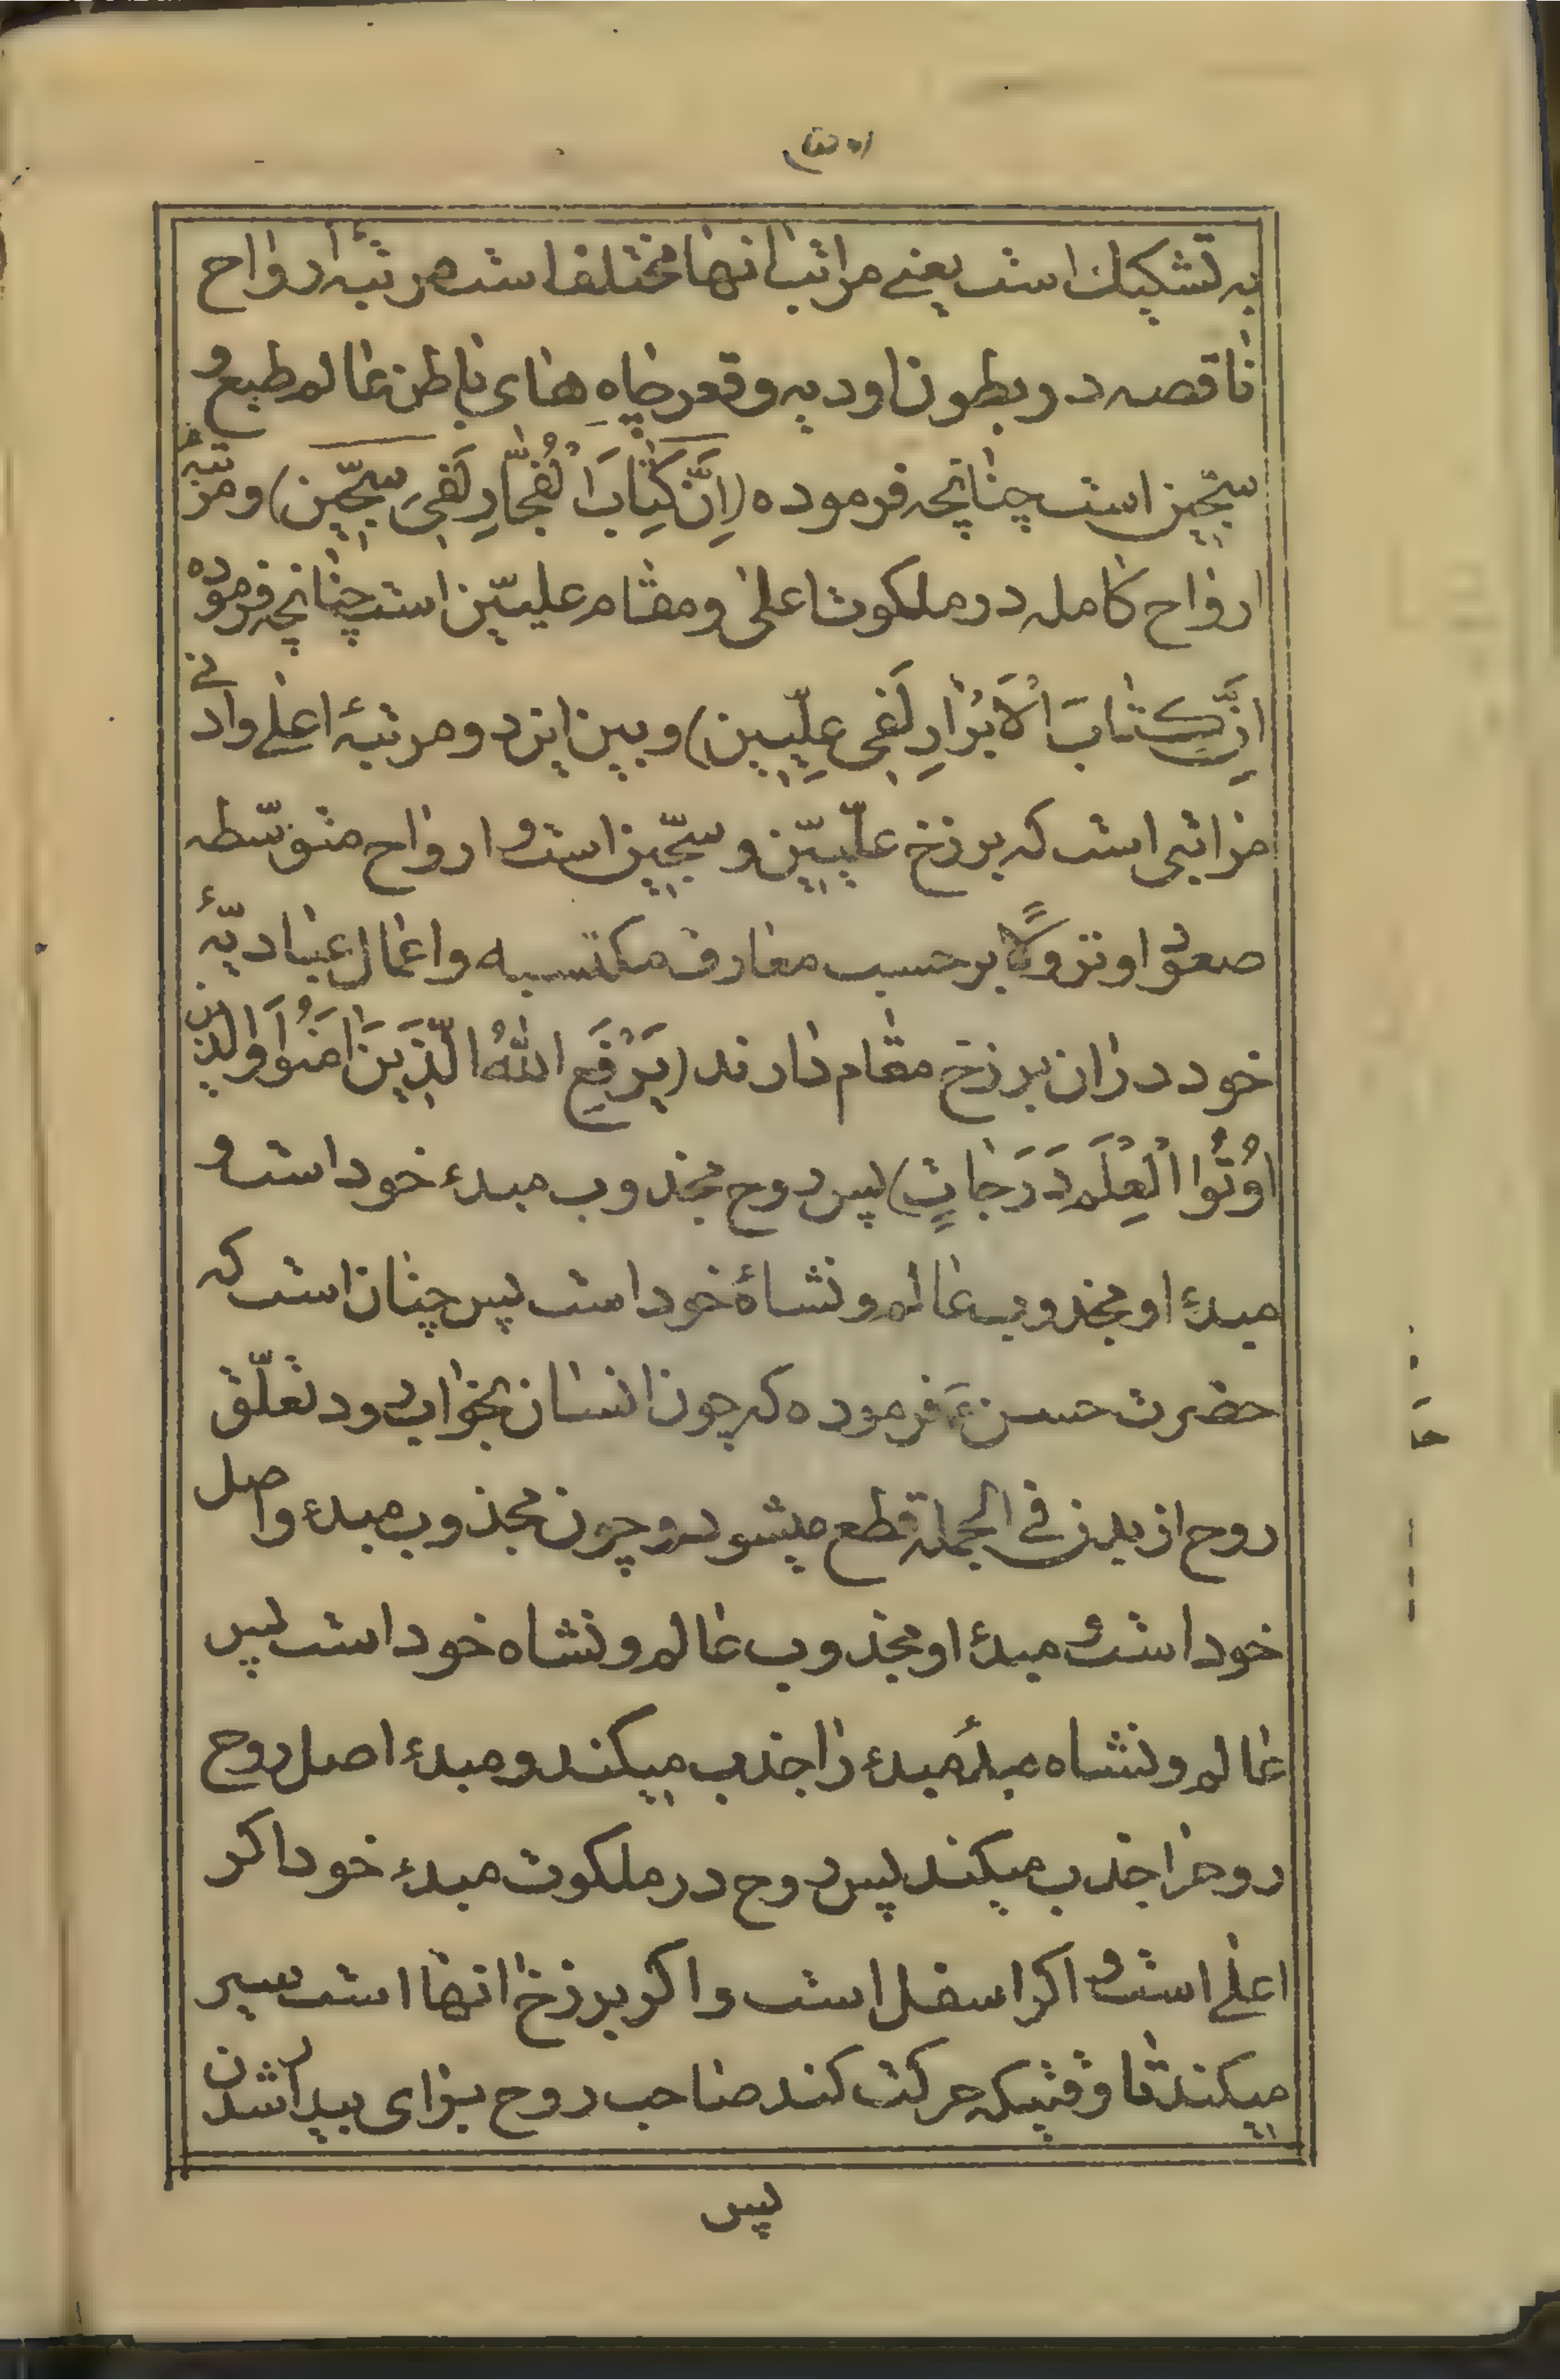 به تشکیک است یعنے مراتب انها مختلف است مرتبهٔ ارواح
ناقصه در بطون اودیه و قعر چاه های باطن عالم طبع و
سجّین است چنانچه فرموده (اِنَّ کِتابَ الْفُجّارِ لَفی سِجّین) و مرتبهٔ
ارواح کامله در ملکوت اعلی و مقام علیّین است چنانچه فرموده
اِنَّ کِتابَ الْاَبْرارِ لَفی عِلِّیین) و بین این دو مرتبهٔ اعلے و ادنے
مراتبی است که برزخ علّییّن و سجّین است و ارواح متوسّطه
صعودا و نزولًا برحسب معارف مکتسبه و اعمال عبادیّهٔ
خود دران برزخ مقام دارند (یَرْفَعِ اللهُ الَّذینَ اٰمَنُوا وَالَّذین
اُوتُوا الْعِلْمَ دَرَجاتٍ) پس روح مجذوب مبدء خود است و
مبدء او مجذوب عالم و نشأهٔ خود است پس چنان است که
حضرت حسن ع فرموده که چون انسان بخواب رود تعلّق
روح از بدن فی الجمله قطع میشود و چون مجذوب مبدء و اصل
خود است و مبدء او مجذوب عالم و نشاه خود است پس
عالم و نشاه مبدأ مبدء را جذب میکند و مبدء اصل روح
روحرا جذب میکند پس روح در ملکوت مبدء خود اکر
اعلے است و اکر اسفل است و اکر برزخ انها است سیر
میکند تا وقتیکه حرکت کند صاحب روح برای بیدار شدن
پس